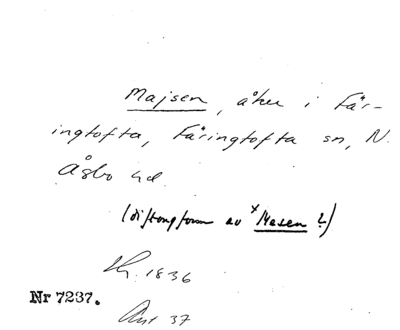 Majsen, åker i Fär-
ingtofta, Färingtofta sn, N.
Åsbo hd.
(diftongform av *Masen?)
1836
Nr 7237.
37